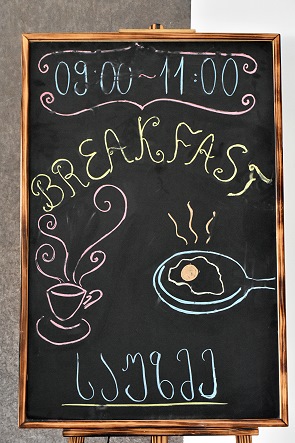 09:00~11:00
BREAKFAST
საუზმე